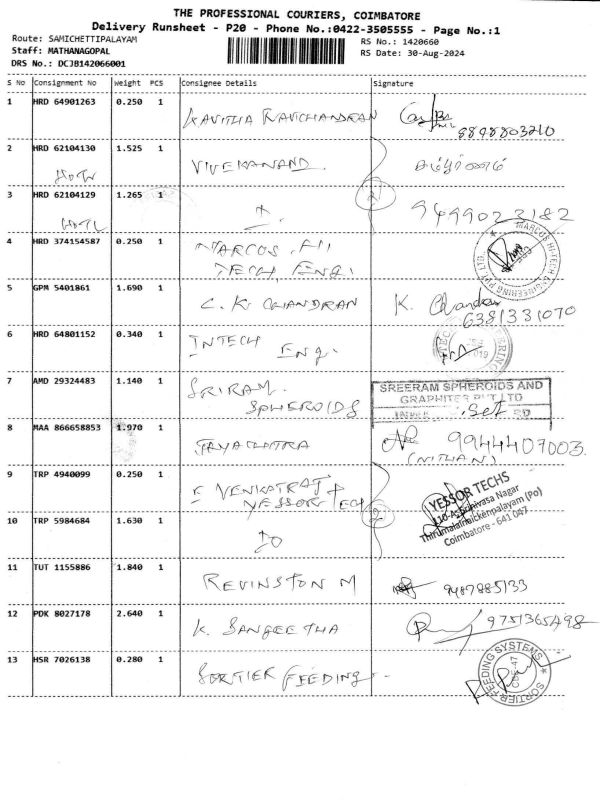 THE PROFESSIONAL COURIERS, COIMBATORE
Delivery Runsheet - P20 - Phone No.:0422-3505555 - Page No.:1
Route: SAMICHETTIPALAYAM
Staff: MATHANAGOPAL
DRS No.: DCJB142066001
RS No.: 1420660
RS Date: 30-Aug-2024
S No Consignment No Weight PCS Consignee Details Signature
1 HRD 64901263 0.250 1 KAVITHA RAVICHANDRAN
9898803210
2 HRD 62104130 1.525 1 VIVEKANAND
3 HRD 62104129 1.265 1 2 9499023182
4 HRD 374154587 0.250 1 MARCOS HI
TECH ENG.
MARCOS HI-TECH ENGINEERING PVT LTD.
5 GPM 5401861 1.690 1 C. K. CHANDRAN K. Chandran
6381331070
6 HRD 64801152 0.340 1 INTECH ENG.
7 AMD 29324483 1.140 1 SRIRAM
SPHEROIDS
SREERAM SPHEROIDS AND
GRAPHITES PVT LTD
8 MAA 866658853 1.970 1 JAYACHITRA 9944407003
(NITHAN)
9 TRP 4940099 0.250 1 VENKATRAJ
YESSOR TECH
YESSOR TECHS
110-A, Srinivasa Nagar
Thirumalainaickenpalayam (Po)
Coimbatore - 641 047
10 TRP 5984684 1.630 1 DO 2
11 TUT 1155886 1.840 1 REVINSTON M 9487885133
12 PDK 8027178 2.640 1 K. SANGEETHA 9751365498
13 HSR 7026138 0.280 1 SORTIER FEEDING
SORTIER FEEDING SYSTEMS
CBE-47